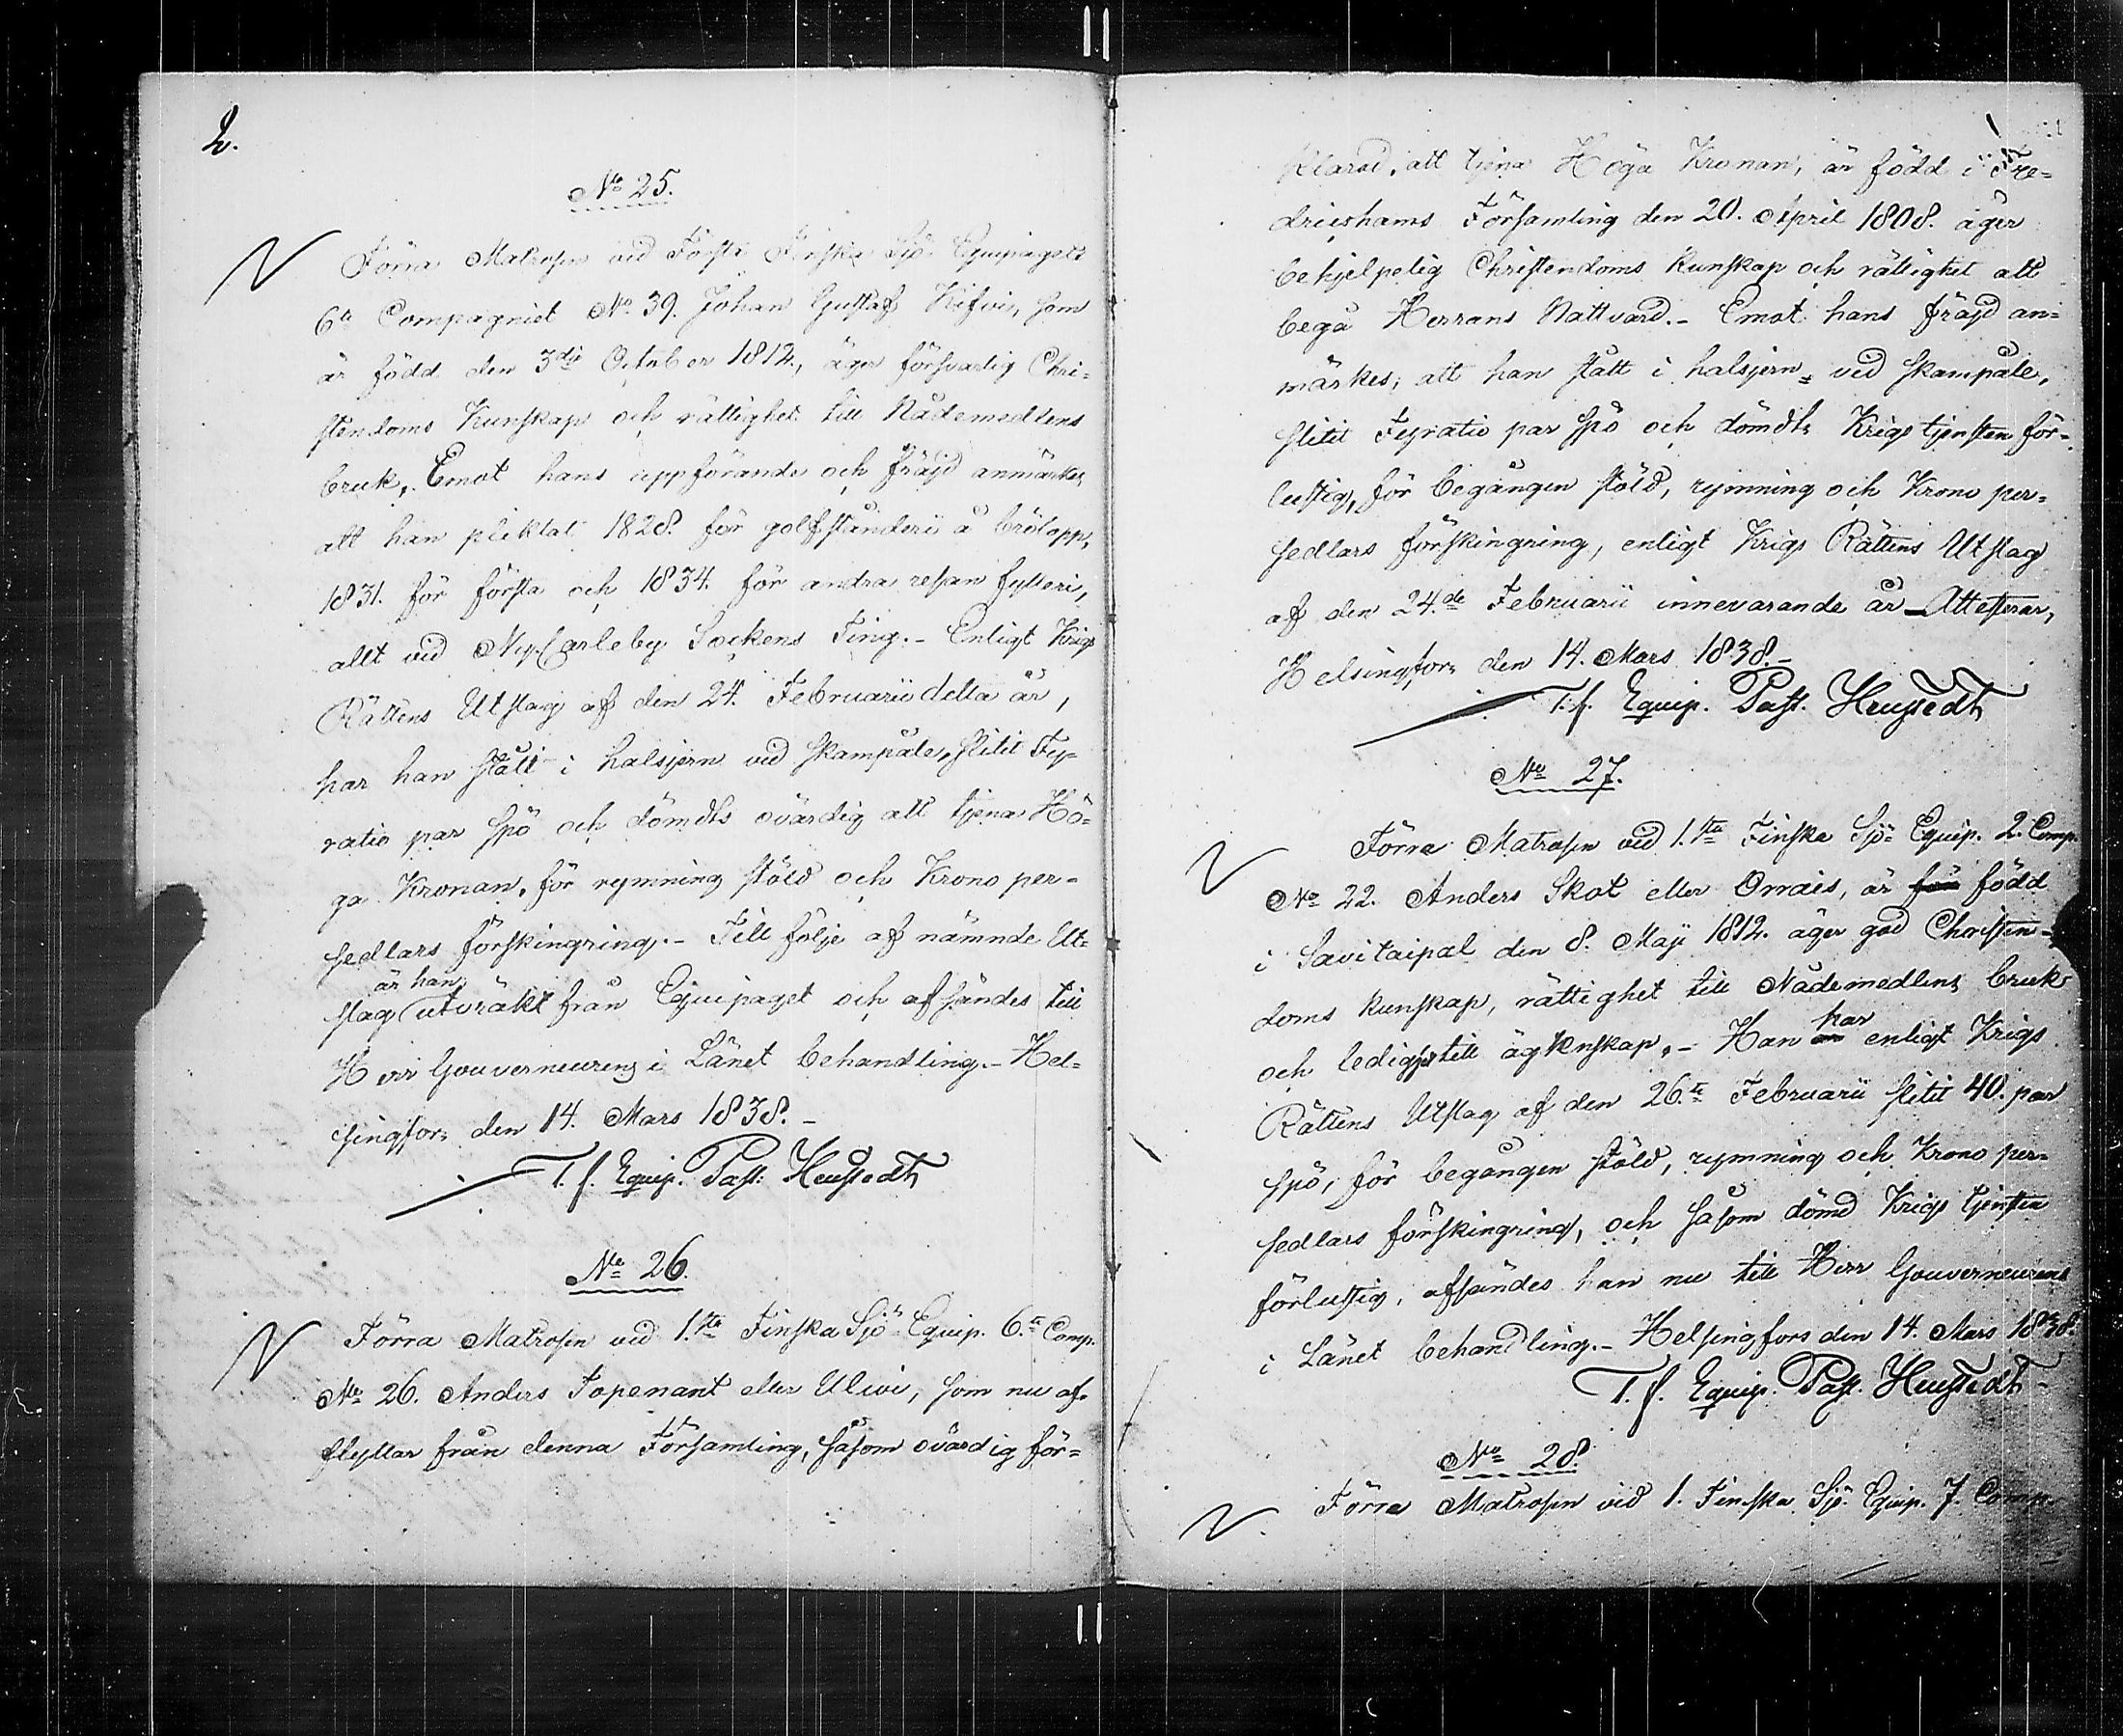 2.
No 25.
Förra Matrosen vid Första Finska Sjö-Equipagets
6te Compagniet No 39. Johan Gustaf Kifvi, som
är född den 3die October 1812, äger försvarlig Chri=
stendoms Kunskap och rättighet till Nådemedlens
bruk. Emot hans uppförande och fräjd anmärkes
att han pliktat 1828. för golfståndéri å brölopp,
1831. för första och 1834. för andra resan fylleri,
allt vid Ny-Carleby Sockens Ting.- Enligt Krigs
Rättens Utslag af den 24. Februarii detta år,
har han stått i halsjern vid skampåle, slitit Fy=
ratio par spö och dömdts ovärdig att tjena Hö=
ga Kronan, för rymning stöld och Krono per=
sedlars förskingring.- Till följe af nämnde Ut=
är han
slag utväkt från Equipaget och afsändes till
Herr Gouverneurens i Länet behandling.- Hel=
singfors den 14. Mars 1838.-
T. f. Equip. Past: Heustedt
No 26.
Förra Matrosen vid 1.sta Finska Sjö-Equip. 6.te Comp.
No 26. Anders Topenant eller Ulivi, som nu af=
flyttar från denna Församling, såsom ovärdig för=
klarad, att tjena Höga Kronan, är född i Fre=
dricshams Församling den 20. April 1808. äger
behjelpelig Christendoms kunskap och rättighet att
begå Herrans Nattvard.- Emot hans fräjd an=
märkes, att han stått i halsjern vid skampåle,
slitit Fyratio par spö och dömdts Krigstjensten för=
lustig, för begången stöld, rymning och Krono per=
sedlars förskingring, enligt Krigs Rättens Utslag
af den 24.de Februarii innevarande år Attesterar,
Helsingfors den 14. Mars 1838.-
T. f. Equip. Past. Heustedt
No 27.
Förra Matrosen vid 1.sta Finska Sjö-Equip. 2. Comp.
No 22. Anders Skot eller Orrais, är född
i Savitaipal den 8. Maji 1812. äger god Christen=
doms kunskap, rättighet till Nådemedlens bruk
har
och ledighet till ägtenskap.- Han enligt Krigs
Rättens Utslag af den 26.te Februarii slitit 40. par
spö, för begången stöld, rymning och Krono per=
sedlars förskingring, och såsom dömd Krigs tjensten
förlustig, afsändes han nu till Herr Gouverneurens
i Länet behandling.- Helsingfors den 14. Mars 1838.
T. f. Equip. Past. Heustedt
No 28.
Förra Matrosen vid 1. Finska Sjö-Equip. 7. Comp.